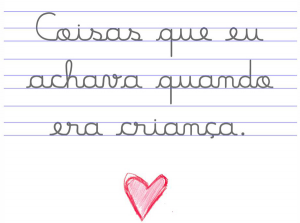 Coisas que eu
achava quando
era criança.